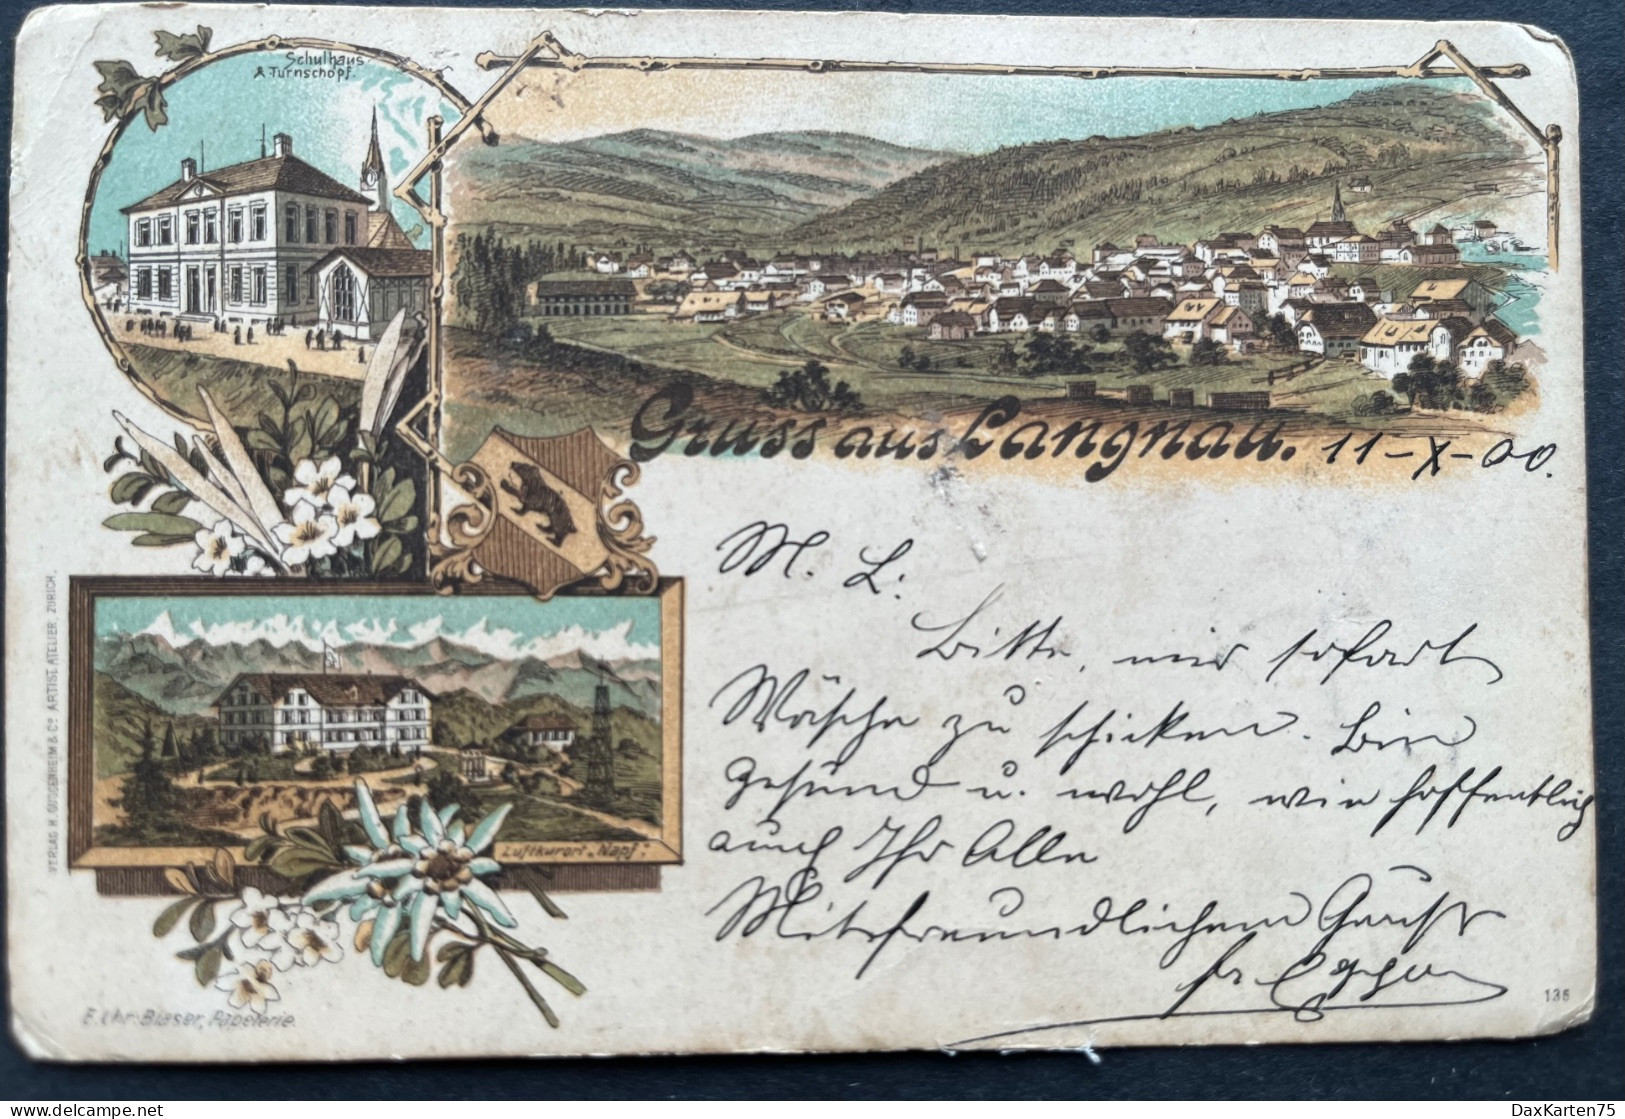 Schulhaus
& Turnschopf.
Gruss aus Langnau. 11-X-00.
M. L.
Bitte, mir sofort
Wäsche zu schicken. Bin
gesund u. wohl, wie hoffentlich
auch Ihr Alle
Mit freundlichem Gruss
Luftkurort „Napf“.
VERLAG H. GUGGENHEIM & Co ARTIST. ATELIER, ZÜRICH.
E. Chr. Blaser, Papeterie.
136
DaxKarten75